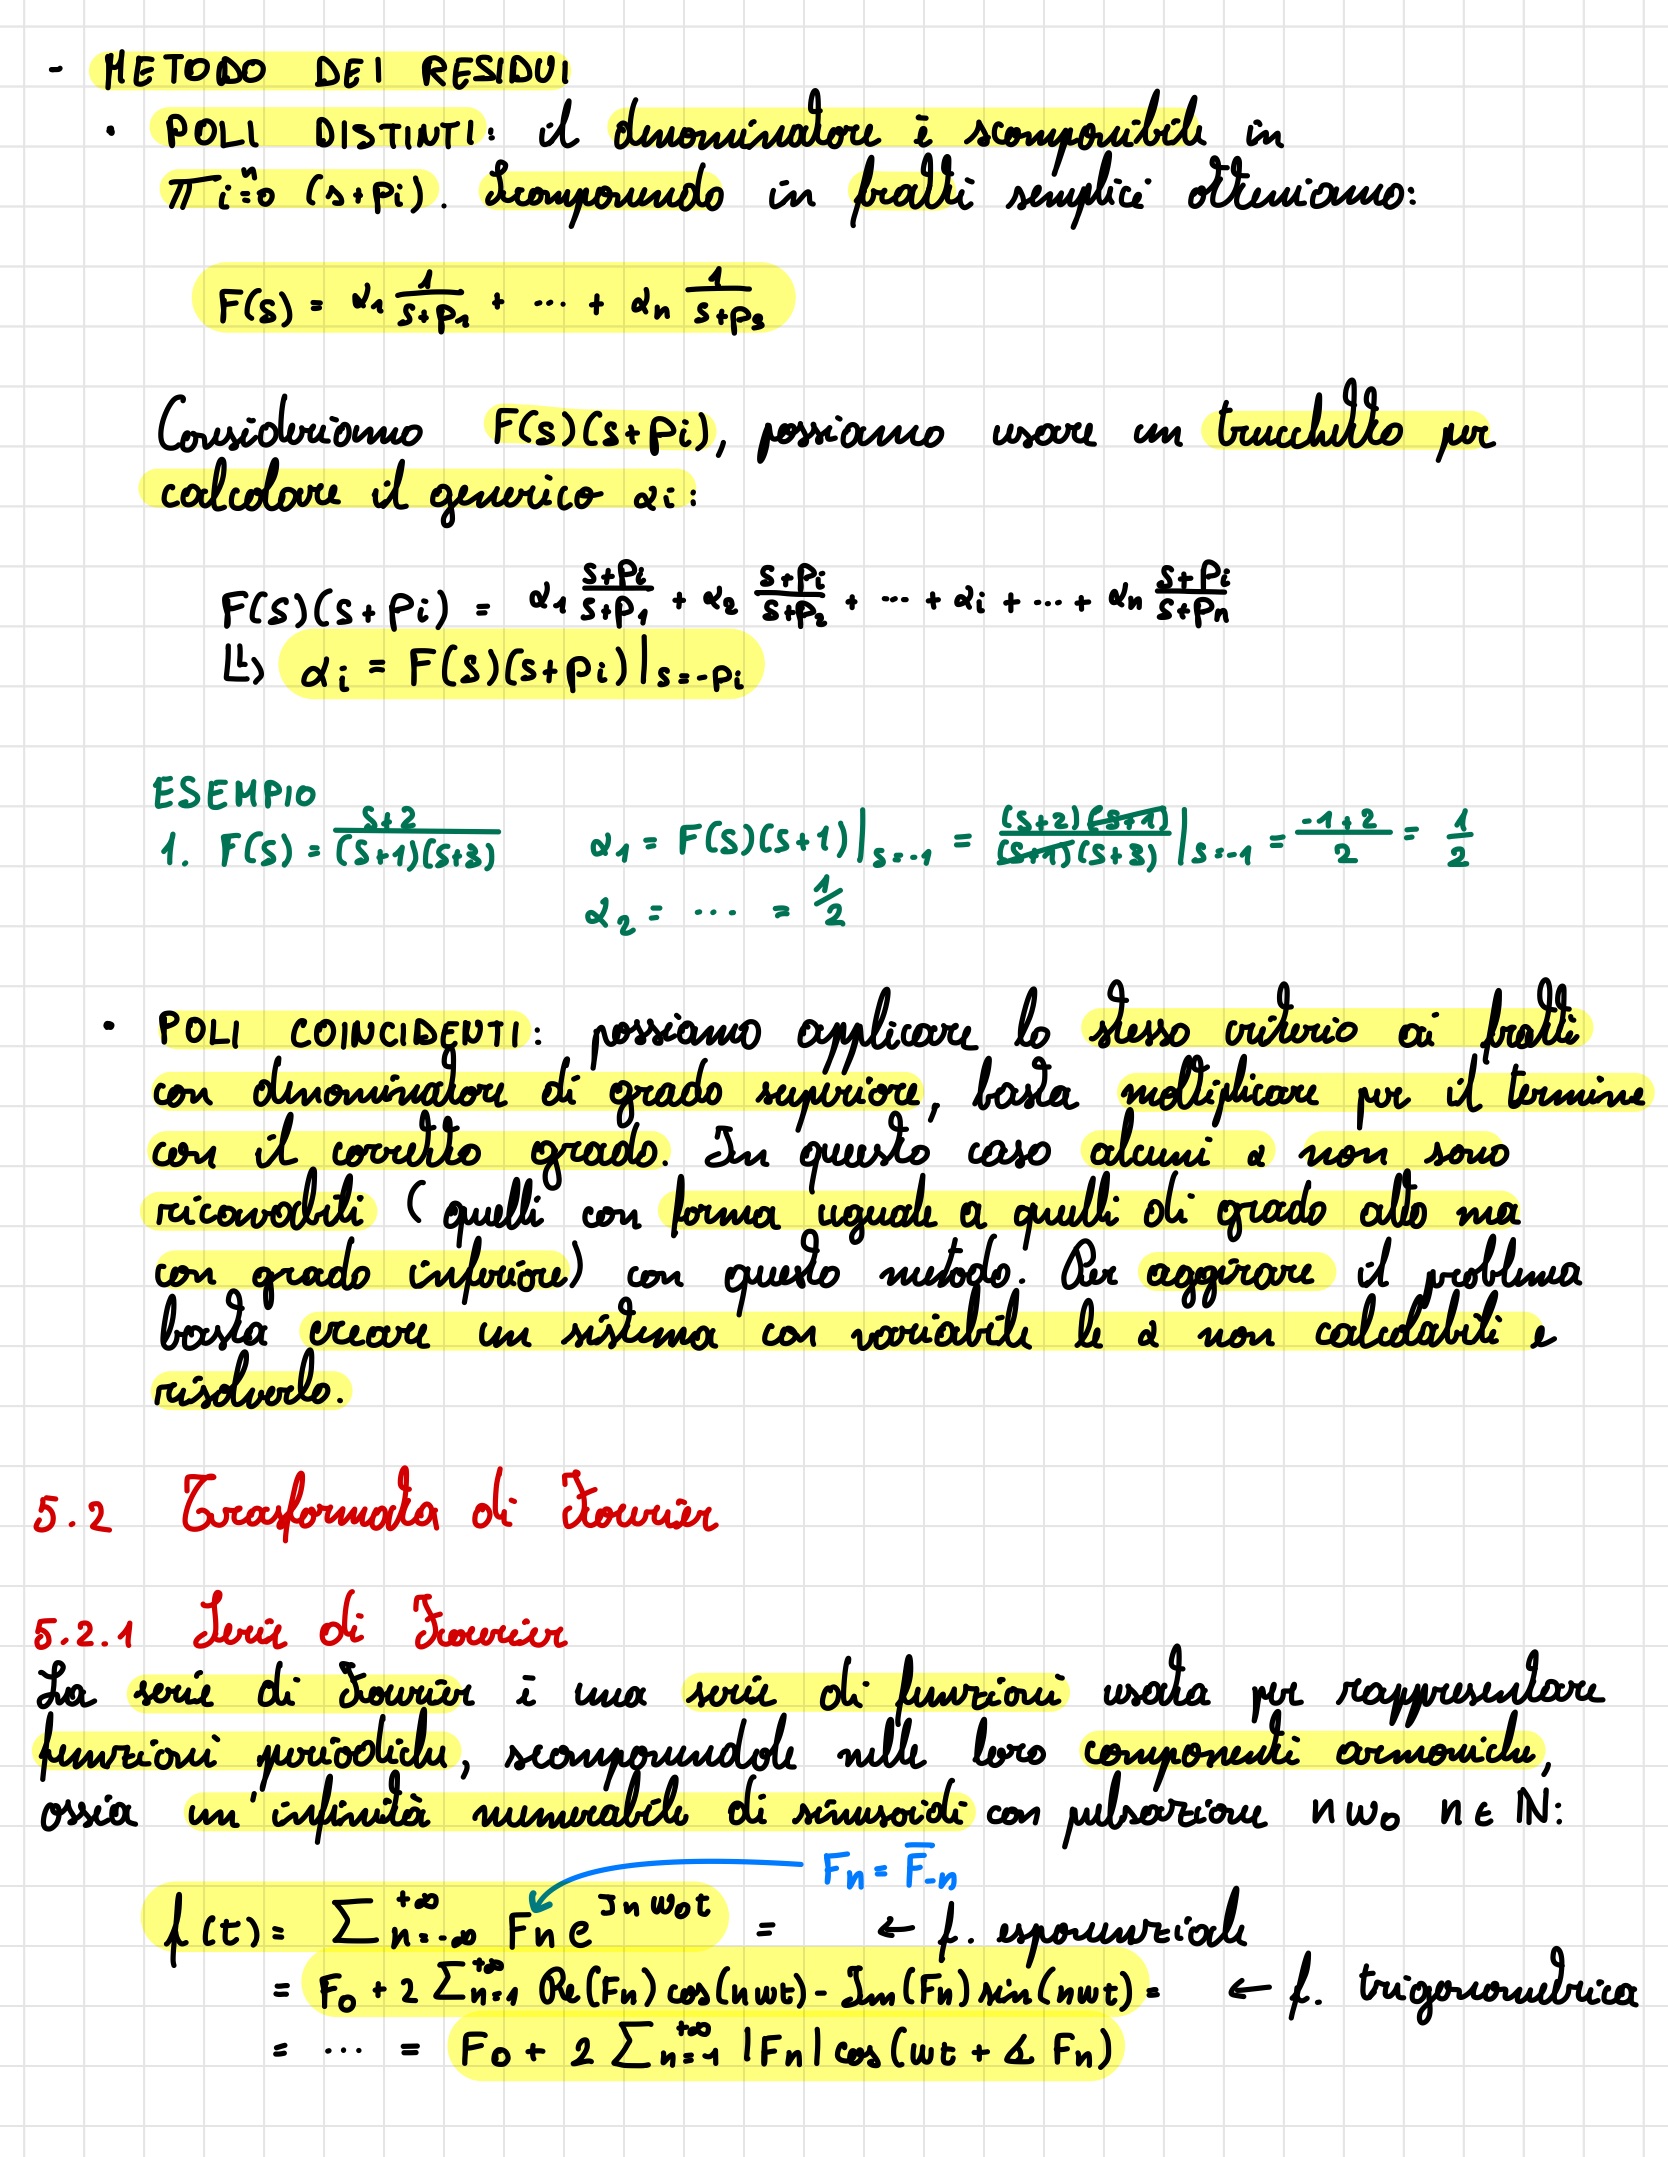 - METODO DEI RESIDUI
• POLI DISTINTI: il denominatore è scomponibile in
π i=0 n (s+pi). Scomponendo in fratti semplici otteniamo:
F(s) = α1 1/(s+p1) + ... + αn 1/(s+ps)
Consideriamo F(s)(s+pi), possiamo usare un trucchetto per
calcolare il generico αi:
F(s)(s+pi) = α1 (s+pi)/(s+p1) + α2 (s+pi)/(s+p2) + ... + αi + ... + αn (s+pi)/(s+pn)
↳ αi = F(s)(s+pi)|s=-pi
ESEMPIO
1. F(s) = (s+2)/((s+1)(s+3)) α1 = F(s)(s+1)|s=-1 = (s+2)(s+1)/((s+1)(s+3))|s=-1 = (-1+2)/2 = 1/2
α2 = ... = 1/2
• POLI COINCIDENTI: possiamo applicare lo stesso criterio ai fratti
con denominatore di grado superiore, basta moltiplicare per il termine
con il corretto grado. In questo caso alcuni α non sono
ricavabili (quelli con forma uguale a quelli di grado alto ma
con grado inferiore) con questo metodo. Per aggirare il problema
basta creare un sistema con variabile le α non calcolabili e
risolverlo.
5.2 Trasformata di Fourier
5.2.1 Serie di Fourier
La serie di Fourier è una serie di funzioni usata per rappresentare
funzioni periodiche, scomponendole nelle loro componenti armoniche,
ossia un'infinità numerabile di sinusoidi con pulsazione nω0 n∈ℕ:
Fn = F̅-n
f(t) = Σ n=-∞ +∞ Fn e^Jnω0t = ← f. esponenziale
= F0 + 2 Σ n=1 +∞ Re(Fn) cos(nωt) - Im(Fn) sin(nωt) = ← f. trigonometrica
= ... = F0 + 2 Σ n=1 +∞ |Fn| cos(ωt + ∡ Fn)